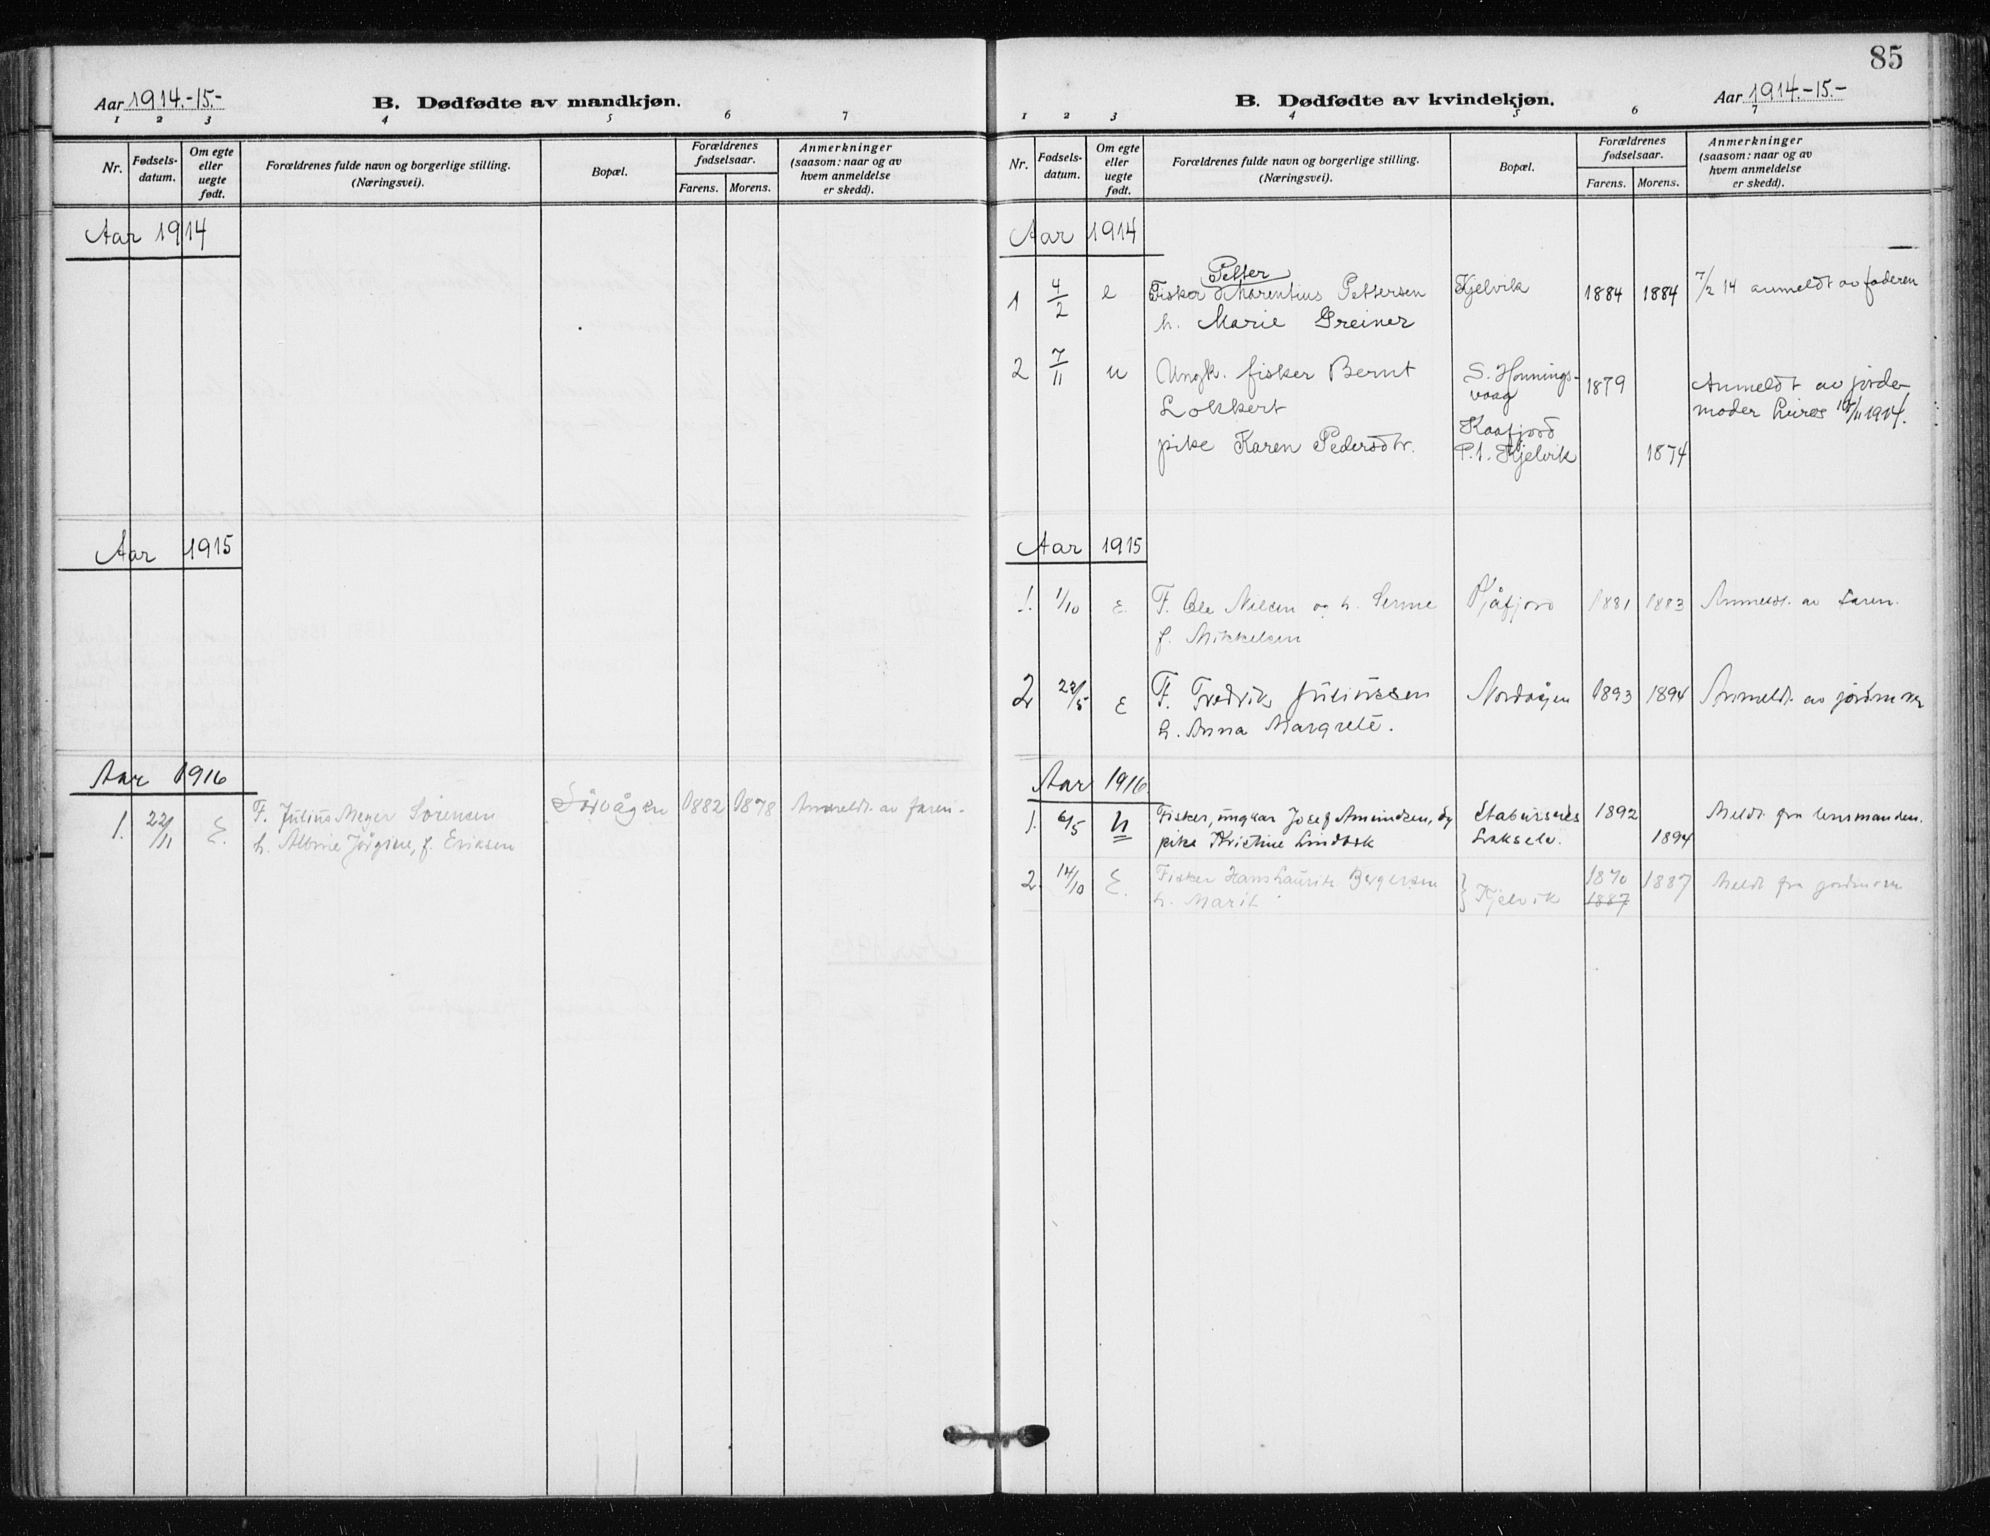 Aar 1914.-15.-
B. Dødfødte av mandkjøn.
1 2 3 4 5 6 7
Nr.
Fødsels-
datum.
Om egte
eller
uegte
født.
Forældrenes fulde navn og borgerlige stilling.
(Næringsvei).
Bopæl.
Forældrenes
fødselsaar.
Farens. Morens.
Anmerkninger
(saasom: naar og av
hvem anmeldelse
er skedd).
Aar 1914
Aar 1915
Aar 1916
1. 22/11 E. F. Julius Meyer Sørensen
h. Albine Jørgine, f. Eriksen
Sørvågen 1882 1878 Anmeldt av faren.
85
B. Dødfødte av kvindekjøn.
Aar 1914.-15.-
1 2 3 4 5 6 7
Nr.
Fødsels-
datum.
Om egte
eller
uegte
født.
Forældrenes fulde navn og borgerlige stilling.
(Næringsvei).
Bopæl.
Forældrenes
fødselsaar.
Farens. Morens.
Anmerkninger
(saasom: naar og av
hvem anmeldelse
er skedd).
Aar 1914
Petter
1 4/2 e Fisker Marentius Pettersen Kjelvik 1884 1884 7/2 14 anmeldt av faderen
h. Marie Greiner
2 7/11 u Ungk. fisker Bernt S. Honnings- 1879 Anmeldt av jorde-
Lokkert vaag moder 1914.
pike Karen Pedersdtr. Kaafjord
P.t. Kjelvik 1874
Aar 1915
1. 1/10 E. F. Ole Nilsen og h. 1881 1883 Anmeldt av faren.
f. Mikkelsen
2 22/5 E F. Fredrik Juliussen Nordvågen 1893 1894 Anmeldt av jordm
h. Anna Margrete.
Aar 1916
1. 6/5 U Fisker, ungkar Josef Amundsen, og Stabursnes 1892 Meldt fra lensmanden.
pike Kristine Lindbæk Lakselv. 1894
2. 14/10 E. Fisker Hans Laurits Bergersen 1870 1887 Meldt fra jordm
h. Marit } Kjelvik 1887